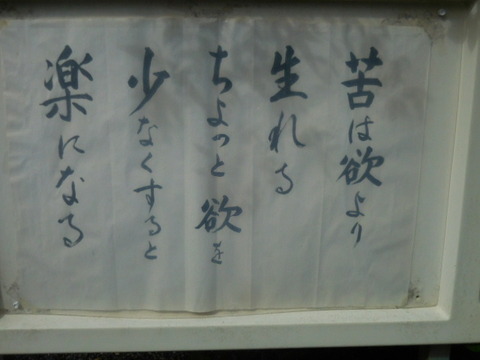 苦は欲より
生れる
ちょっと欲を
少なくすると
楽になる